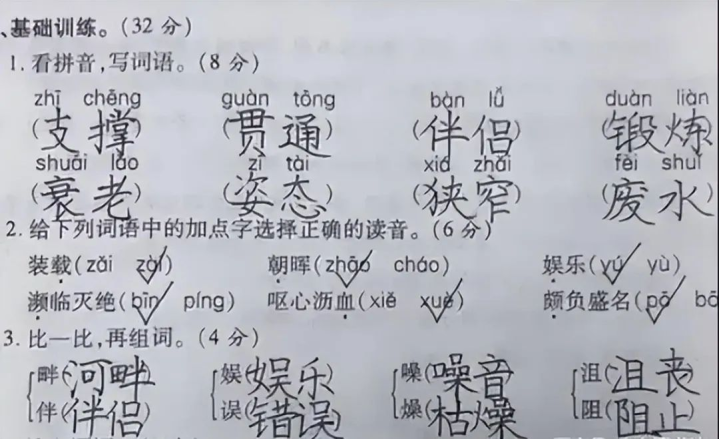 、基础训练。(32 分)
1. 看拼音,写词语。(8 分)
zhī chēng guàn tōng bàn lǚ duàn liàn
(支撑) (贯通) (伴侣) (锻炼)
shuāi lǎo zī tài xiá zhǎi fèi shuǐ
(衰老) (姿态) (狭窄) (废水)
2. 给下列词语中的加点字选择正确的读音。(6 分)
装载(zǎi zài) 朝晖(zhāo cháo) 娱乐(yú yù)
濒临灭绝(bīn píng) 呕心沥血(xiě xuè) 颇负盛名(pō
3. 比一比,再组词。(4 分)
畔(河畔) 娱(娱乐) 噪(噪音) 沮(沮丧
伴(伴侣) 误(错误) 燥(枯燥 阻(阻止